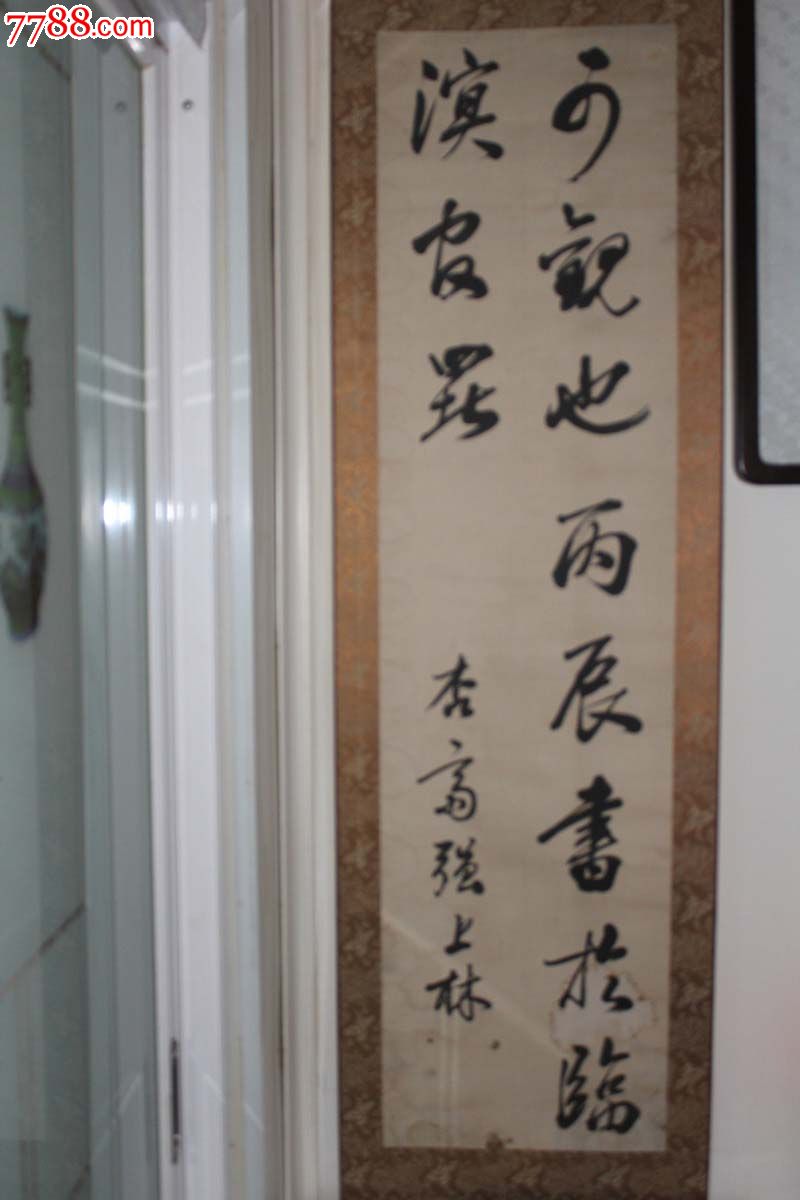 7788.com
可觀也丙辰書於臨
溟官署
杏齋强上林